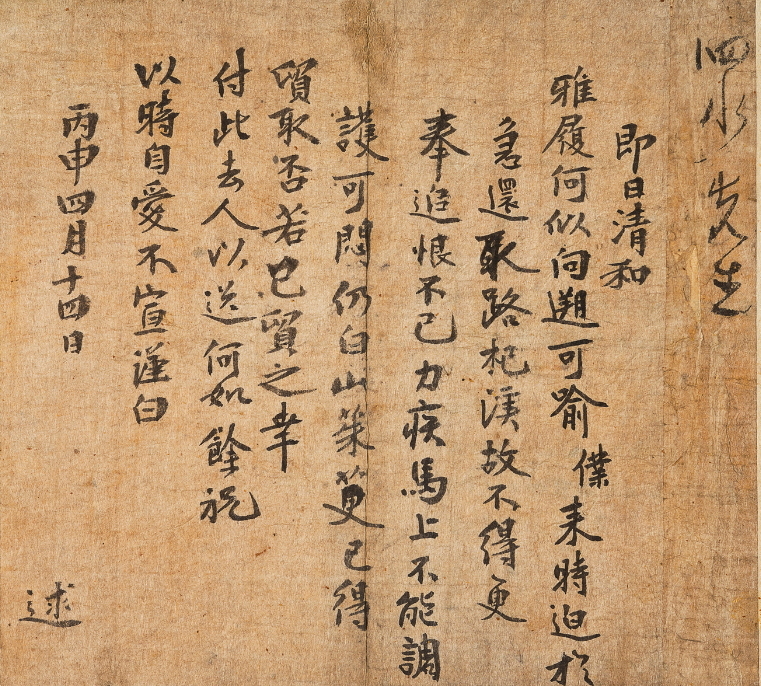 泗水先生
即日清和
雅履何似向遡可喻僕来時迫於
急還取路杞溪故不得更
奉追恨不已力疾馬上不能調
護可悶仍白山已得
貿取否若已貿之幸
付此去人以送何如餘祝
以時自愛不宣謹白
丙申四月十四日
逑